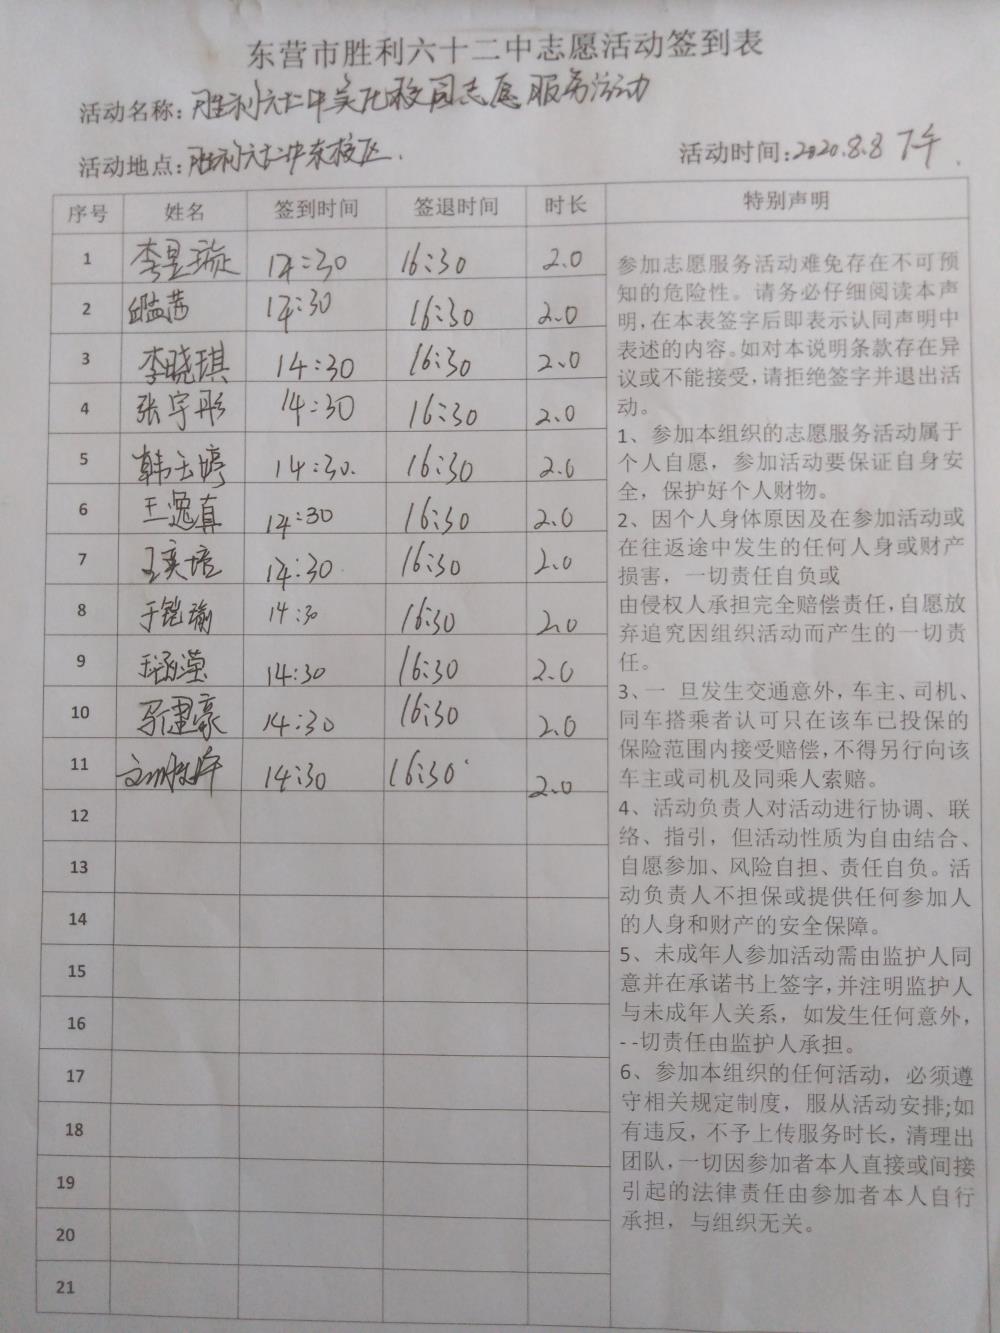 东营市胜利六十二中志愿活动签到表
活动名称:胜利六十二中美化校园志愿服务活动
活动地点:胜利六十二中东校区.
活动时间:2020.8.8 下午.
序号 姓名 签到时间 签退时间 时长 特别声明
1 李昱璇 14:30 16:30 2.0
2 14:30 16:30 2.0
3 李晓琪 14:30 16:30 2.0
4 张宇彤 14:30 16:30 2.0
5 韩玉婷 14:30. 16:30 2.0
6 王逸真 14:30 16:30 2.0
7 王奕培 14:30. 16:30 2.0
8 于铠瑜 14:30 16:30 2.0
9 14:30 16:30 2.0
10 马建豪 14:30 16:30 2.0
11 14:30 16:30 2.0
12
13
14
15
16
17
18
19
20
21
参加志愿服务活动难免存在不可预
知的危险性。请务必仔细阅读本声
明,在本表签字后即表示认同声明中
表述的内容。如对本说明条款存在异
议或不能接受,请拒绝签字并退出活
动。
1、参加本组织的志愿服务活动属于
个人自愿，参加活动要保证自身安
全，保护好个人财物。
2、因个人身体原因及在参加活动或
在往返途中发生的任何人身或财产
损害，一切责任自负或
由侵权人承担完全赔偿责任,自愿放
弃追究因组织活动而产生的一切责
任。
3、一 旦发生交通意外,车主、司机、
同车搭乘者认可只在该车已投保的
保险范围内接受赔偿,不得另行向该
车主或司机及同乘人索赔。
4、活动负责人对活动进行协调、联
络、指引，但活动性质为自由结合、
自愿参加、风险自担、责任自负。活
动负责人不担保或提供任何参加人
的人身和财产的安全保障。
5、未成年人参加活动需由监护人同
意并在承诺书上签字,并注明监护人
与未成年人关系，如发生任何意外，
--切责任由监护人承担。
6、参加本组织的任何活动，必须遵
守相关规定制度，服从活动安排;如
有违反，不予上传服务时长，清理出
团队,一切因参加者本人直接或间接
引起的法律责任由参加者本人自行
承担，与组织无关。